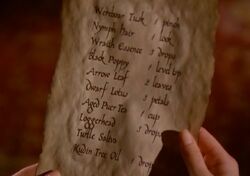 Werebear Tusk 1 pinch
Nymph Hair 1 lock
Wraith Essence 3 drops
Black Poppy 1
Arrow Leaf 2 leaves
Dwarf Lotus 3 petals
Aged Puer Tea 1 cup
Loggerhead 3 drops
Turtle Saliva
Tree Oil 1 drop